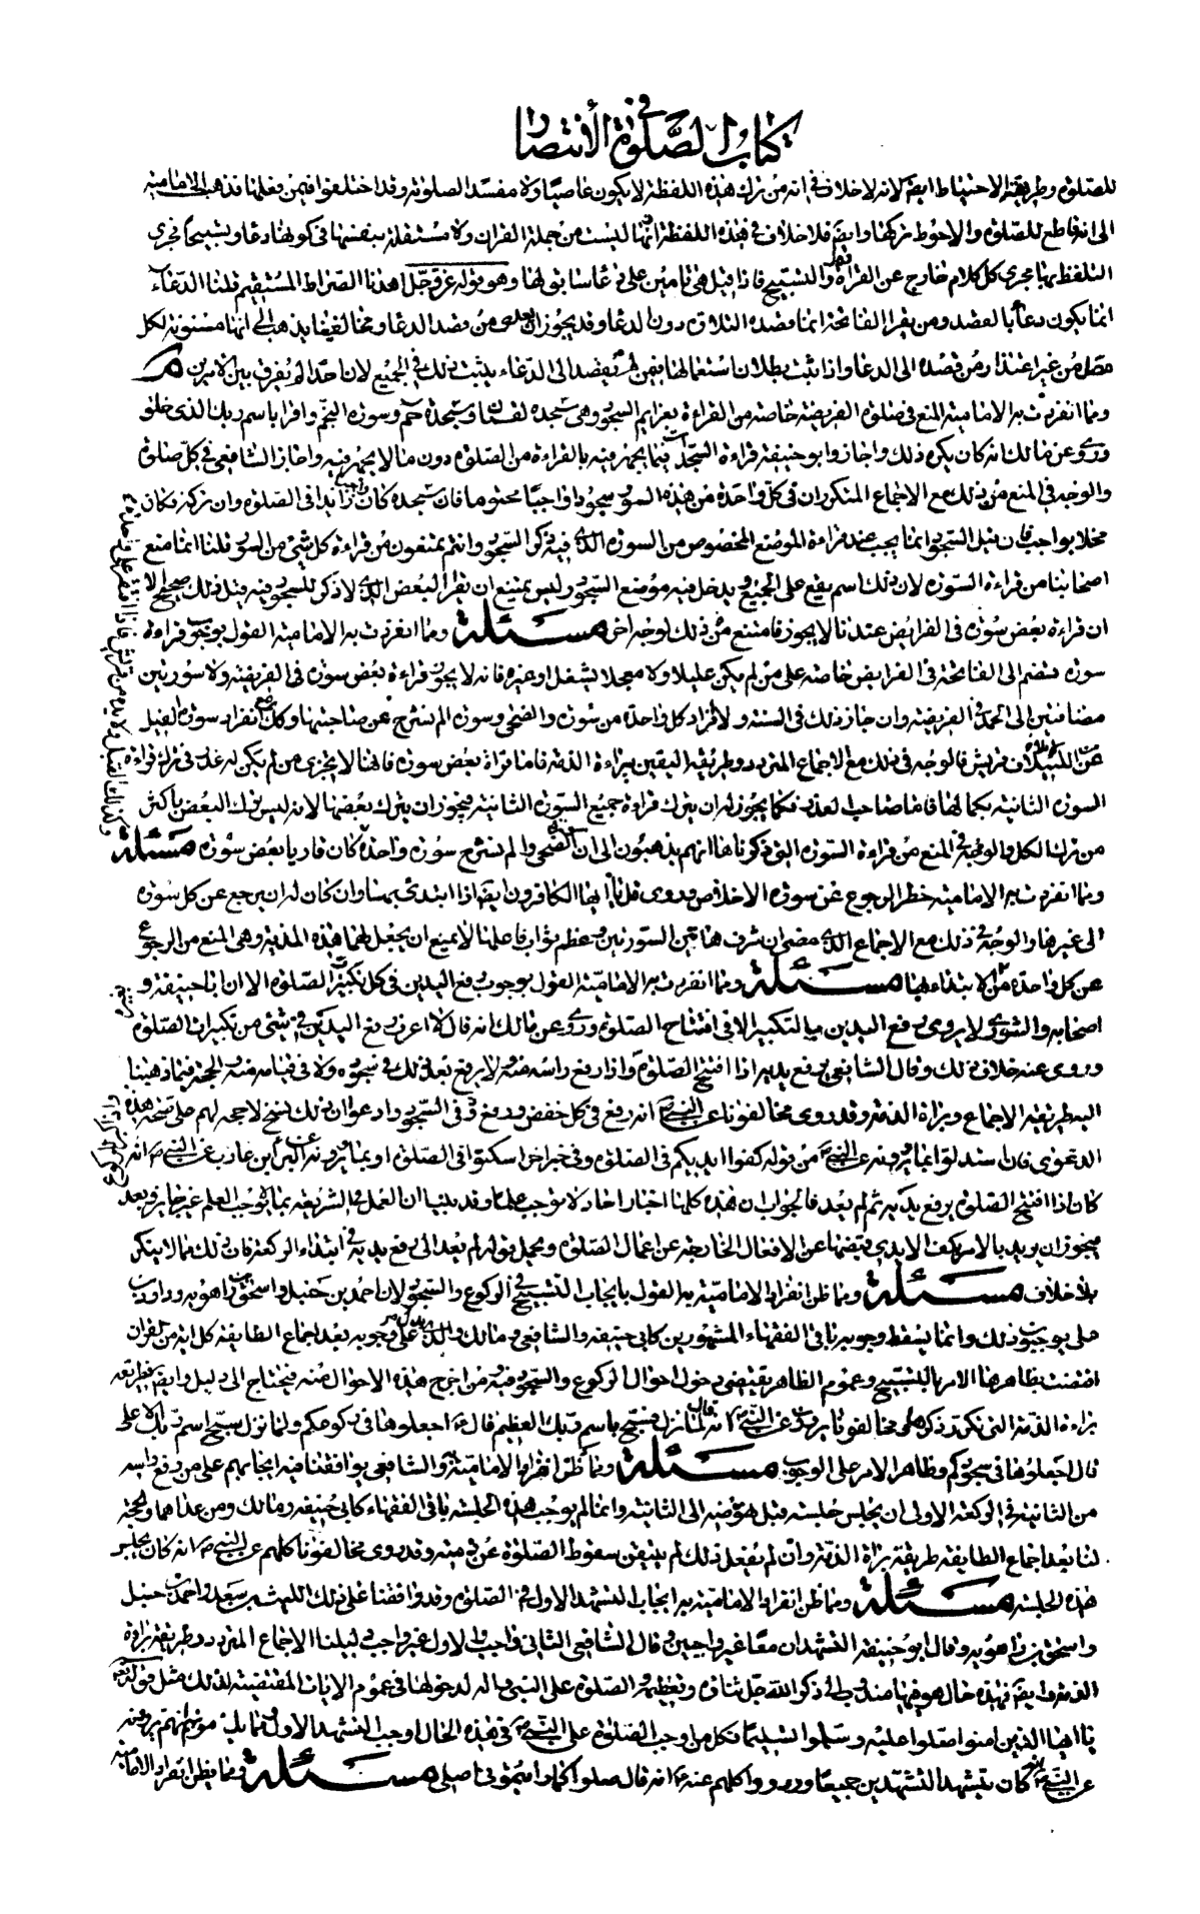 كتاب الصلوة في الأنتصار
للصلوة وطريقة الاحتياط ايضا لانه لا خلاف في انه من ترك هذه اللفظة لا يكون عاصيا ولا مفسد الصلوته وقد اختلفوا فيمن فعلها فذهب الامامية
الى انه قاطع للصلوة والاحوط تركها وايضا فلا خلاف في هذه اللفظة انها ليست من جملة القران ولا مستقلة بنفسها في كونها دعاء وتسبيحا فجرى
التلفظ بها مجرى كل كلام خارج عن القراءة والتسبيح فاذا قيل هي تامين على دعاء سابق لها وهو قوله عز وجل اهدنا الصراط المستقيم قلنا الدعاء
انما يكون دعاء بالقصد ومن يقرا الفاتحة انما قصده التلاوة دون الدعاء وقد يجوز ان يعرى من قصد الدعاء ومخالفنا يذهب الى انها مسنونة لكل
مصل من غير اعتبار من قصده الى الدعاء واذا ثبت بطلان استعمالها فيمن لم يقصد الى الدعاء يثبت ذلك في الجميع لان احدا لم يفرق بين الامرين م
ومما انفردت به الامامية المنع في صلوة الفريضة خاصة من القراءة بعزايم السجود وهي سجدة لقمان وسجدة حم وسورة النجم واقرا باسم ربك الذى خلق
وروى عن مالك انه كان يكره ذلك واجاز ابو حنيفة قراءة السجدات فيما يجهر فيه بالقراءة من الصلوة دون ما لا يجهر فيه واجاز الشافعى في كل صلوة
والوجه في المنع من ذلك مع الاجماع المتكرر ان في كل واحدة من هذه السور سجودا واجبا محتوما فان سجده كان زايدا في الصلوة وان تركه كان
مخلا بواجب فان قيل السجود انما يجب عند قراءة الموضع المخصوص من السورة الذى فيه ذكر السجود وانتم تمنعون من قراءة كل شئ من السورة قلنا انما منع
اصحابنا من قراءة السورة لان ذلك اسم يقع على الجميع ويدخل فيه موضع السجود وليس يمتنع ان يقرا البعض الذى لا ذكر للسجود فيه قبل ذلك صحيح الا
ان قراءة بعض سورة في الفرائض عندنا لا يجوز فامتنع من ذلك لوجه اخر مسئلة ومما انفردت به الامامية القول بوجوب قراءة
سورة تضم الى الفاتحة في الفرايض خاصة على من لم يكن عليلا ولا معجلا بشغل او غيره فانه لا يجوز قراءة بعض سورة في الفريضة ولا سورتين
مضافتين الى الحمد في الفريضة وان جاز ذلك في السنة ولا افراد كل واحدة من سورة والضحى وسورة الم نشرح عن صاحبتها وكذلك انفراد سورة الفيل
عن لايلاف قريش فالوجه في ذلك مع الاجماع المتردد وطريقة اليقين ببراءة الذمة فاما قراءة بعض سورة فانها لا يجزى من لم يكن له عذر في ترك قراءة
السورة الثانية بكمالها فاما صاحب العذر فكما يجوز له ان يترك قراءة جميع السورة الثانية فيجوز ان يترك بعضها لانه ليس ترك البعض باكثر
من ترك الكل والوجه في المنع من قراءة السورة التى ذكرناها انهم يذهبون الى ان سورة الضحى والم نشرح سورة واحدة كان قاريا بعض سورة مسئلة
ومما انفردت به الامامية حظر الرجوع عن سورة الاخلاص وروى قل يا ايها الكافرون ايضا اذا ابتدئ بهما وان كان له ان يرجع عن كل سورة
الى غيرها والوجه في ذلك مع الاجماع الذى مضى ان شرف هاتين السورتين وعظم ثواب فاعلهما لا يمنع ان يجعل لهما هذه المزية وهى المنع من الرجوع
عن كل واحدة من الابتداء بها مسئلة ومما انفردت به الامامية القول بوجوب رفع اليدين في كل تكبيرات الصلوة الا ان ابا حنيفة و
اصحابه والثورى لا يروى رفع اليدين بالتكبير الا في افتتاح الصلوة وروى عن مالك انه قال لا اعرف رفع اليدين في شئ من تكبيرات الصلوة
وروى عنه خلاف ذلك وقال الشافعى يرفع يديه اذا افتتح الصلوة واذا رفع راسه منه ولا يرفع بعد ذلك في سجوده ولا في قيامه منه والحجة فيما ذهبنا
اليه طريقة الاجماع وبراءة الذمة وقد روى مخالفونا عن النبى انه رفع في كل خفض ورفع وفي السجود وادعوا ان ذلك نسخ لا حجة لهم على صحة هذه
الدعوى فان استدلوا بما يروونه عن النبى من قوله كفوا ايديكم في الصلوة وفي خبر اخر اسكنوا في الصلوة او بما يروونه عن البراء بن عازب عن النبى ص انه
كان اذا افتتح الصلوة يرفع يديه ثم لم يعد فالجواب ان هذه كلها اخبار احاد لا توجب علما وقد بينا ان العمل في الشريعة بما لا يوجب العلم غير جايز وبعد
فيجوز ان يريد بالامر بكف الايدى قبضها عن الافعال الخارجة عن اعمال الصلوة ويحمل قوله لم يعد الى رفع يديه في ابتداء الركعة فان ذلك مما لا يتكرر
بلا خلاف مسئلة ومما ظن انفراد الامامية به القول بايجاب التسبيح في الركوع والسجود لان احمد بن حنبل واسحق بن راهويه وداود
على بوجوب ذلك وانما يسقط وجوبه باقى الفقهاء المشهورين كابى حنيفة والشافعى ومالك والذى يدل على وجوبه بعد اجماع الطايفة كل اية من القران
اقتضت بظاهرها الامر بالتسبيح وعموم الظاهر يقتضى دخول احوال الركوع والسجود فيه ومن اخرج هذه الاحوال منه فيحتاج الى دليل وايضا طريقة
براءة الذمة التى تكرر ذكرها ومخالفونا يروون عن النبى انه قال لما نزل فسبح باسم ربك العظيم قال ع اجعلوها في ركوعكم ولما نزل سبح اسم ربك الاعلى
قال اجعلوها في سجودكم وظاهر الامر على الوجوب مسئلة ومما ظن انفراد الامامية به والشافعى يوافقنا فيه ايجابهم على من رفع راسه
من الثانية في الركعة الاولى ان يجلس جلسة قبل نهوضه الى الثانية وانما لم يوجب هذه الجلسة باقى الفقهاء كابى حنيفة ومالك ومن عداهما والحجة
لنا بعد اجماع الطايفة طريقة براءة الذمة وان لم يفعل ذلك لم يتيقن سقوط الصلوة عن ذمته وقد روى مخالفونا كلهم عن النبى ص انه كان يجلس
هذه الجلسة مسئلة ومما ظن انفراد الامامية به ايجاب التشهد الاول في الصلوة وقد وافقنا على ذلك الليث بن سعد واحمد بن حنبل
واسحق بن راهويه وقال ابو حنيفة التشهدان معا غير واجبين وقال الشافعى الثانى واجب والاول غير واجب دليلنا الاجماع المتردد وطريقة براءة
الذمة وايضا فهذه حال هو فيها مندوب الى ذكر الله جل ثناؤه وتعظيمه والصلوة على النبى واله لدخولها في عموم الايات المقتضية لذلك مثل قوله تعالى
يا ايها الذين امنوا صلوا عليه وسلموا تسليما فكل من اوجب الصلوة على النبى في هذه الحال اوجب التشهد الاول ومما يلزمونهم انهم يروونه
عن النبى انه كان يتشهد التشهدين جميعا ورووا كلهم عنه ع انه قال صلوا كما رايتمونى اصلى مسئلة ومما يظن انفراد الامامية